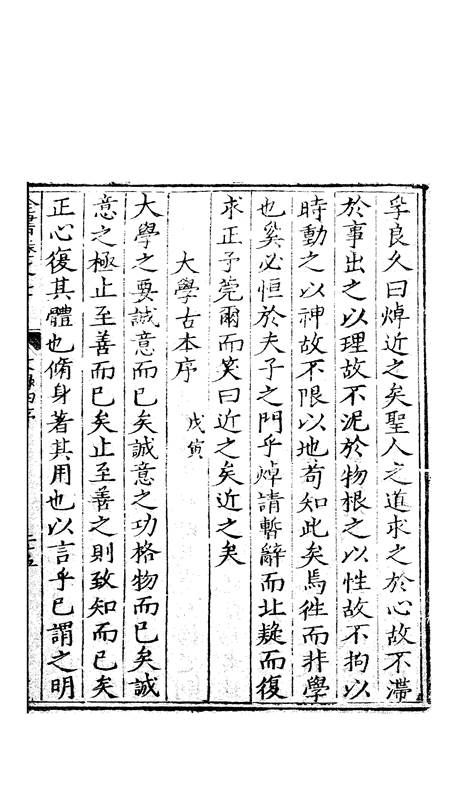 孚良久曰焯近之矣聖人之道求之於心故不滯
於事出之以理故不泥於物根之以性故不拘以
時動之以神故不限以地苟知此矣焉徃而非學
也奚必恒於夫子之門乎焯請暫辭而北疑而復
求正予莞爾而笑曰近之矣近之矣
大學古本序 戊寅
大學之要誠意而已矣誠意之功格物而已矣誠
意之極止至善而已矣止至善之則致知而已矣
正心復其體也脩身著其用也以言乎已謂之明